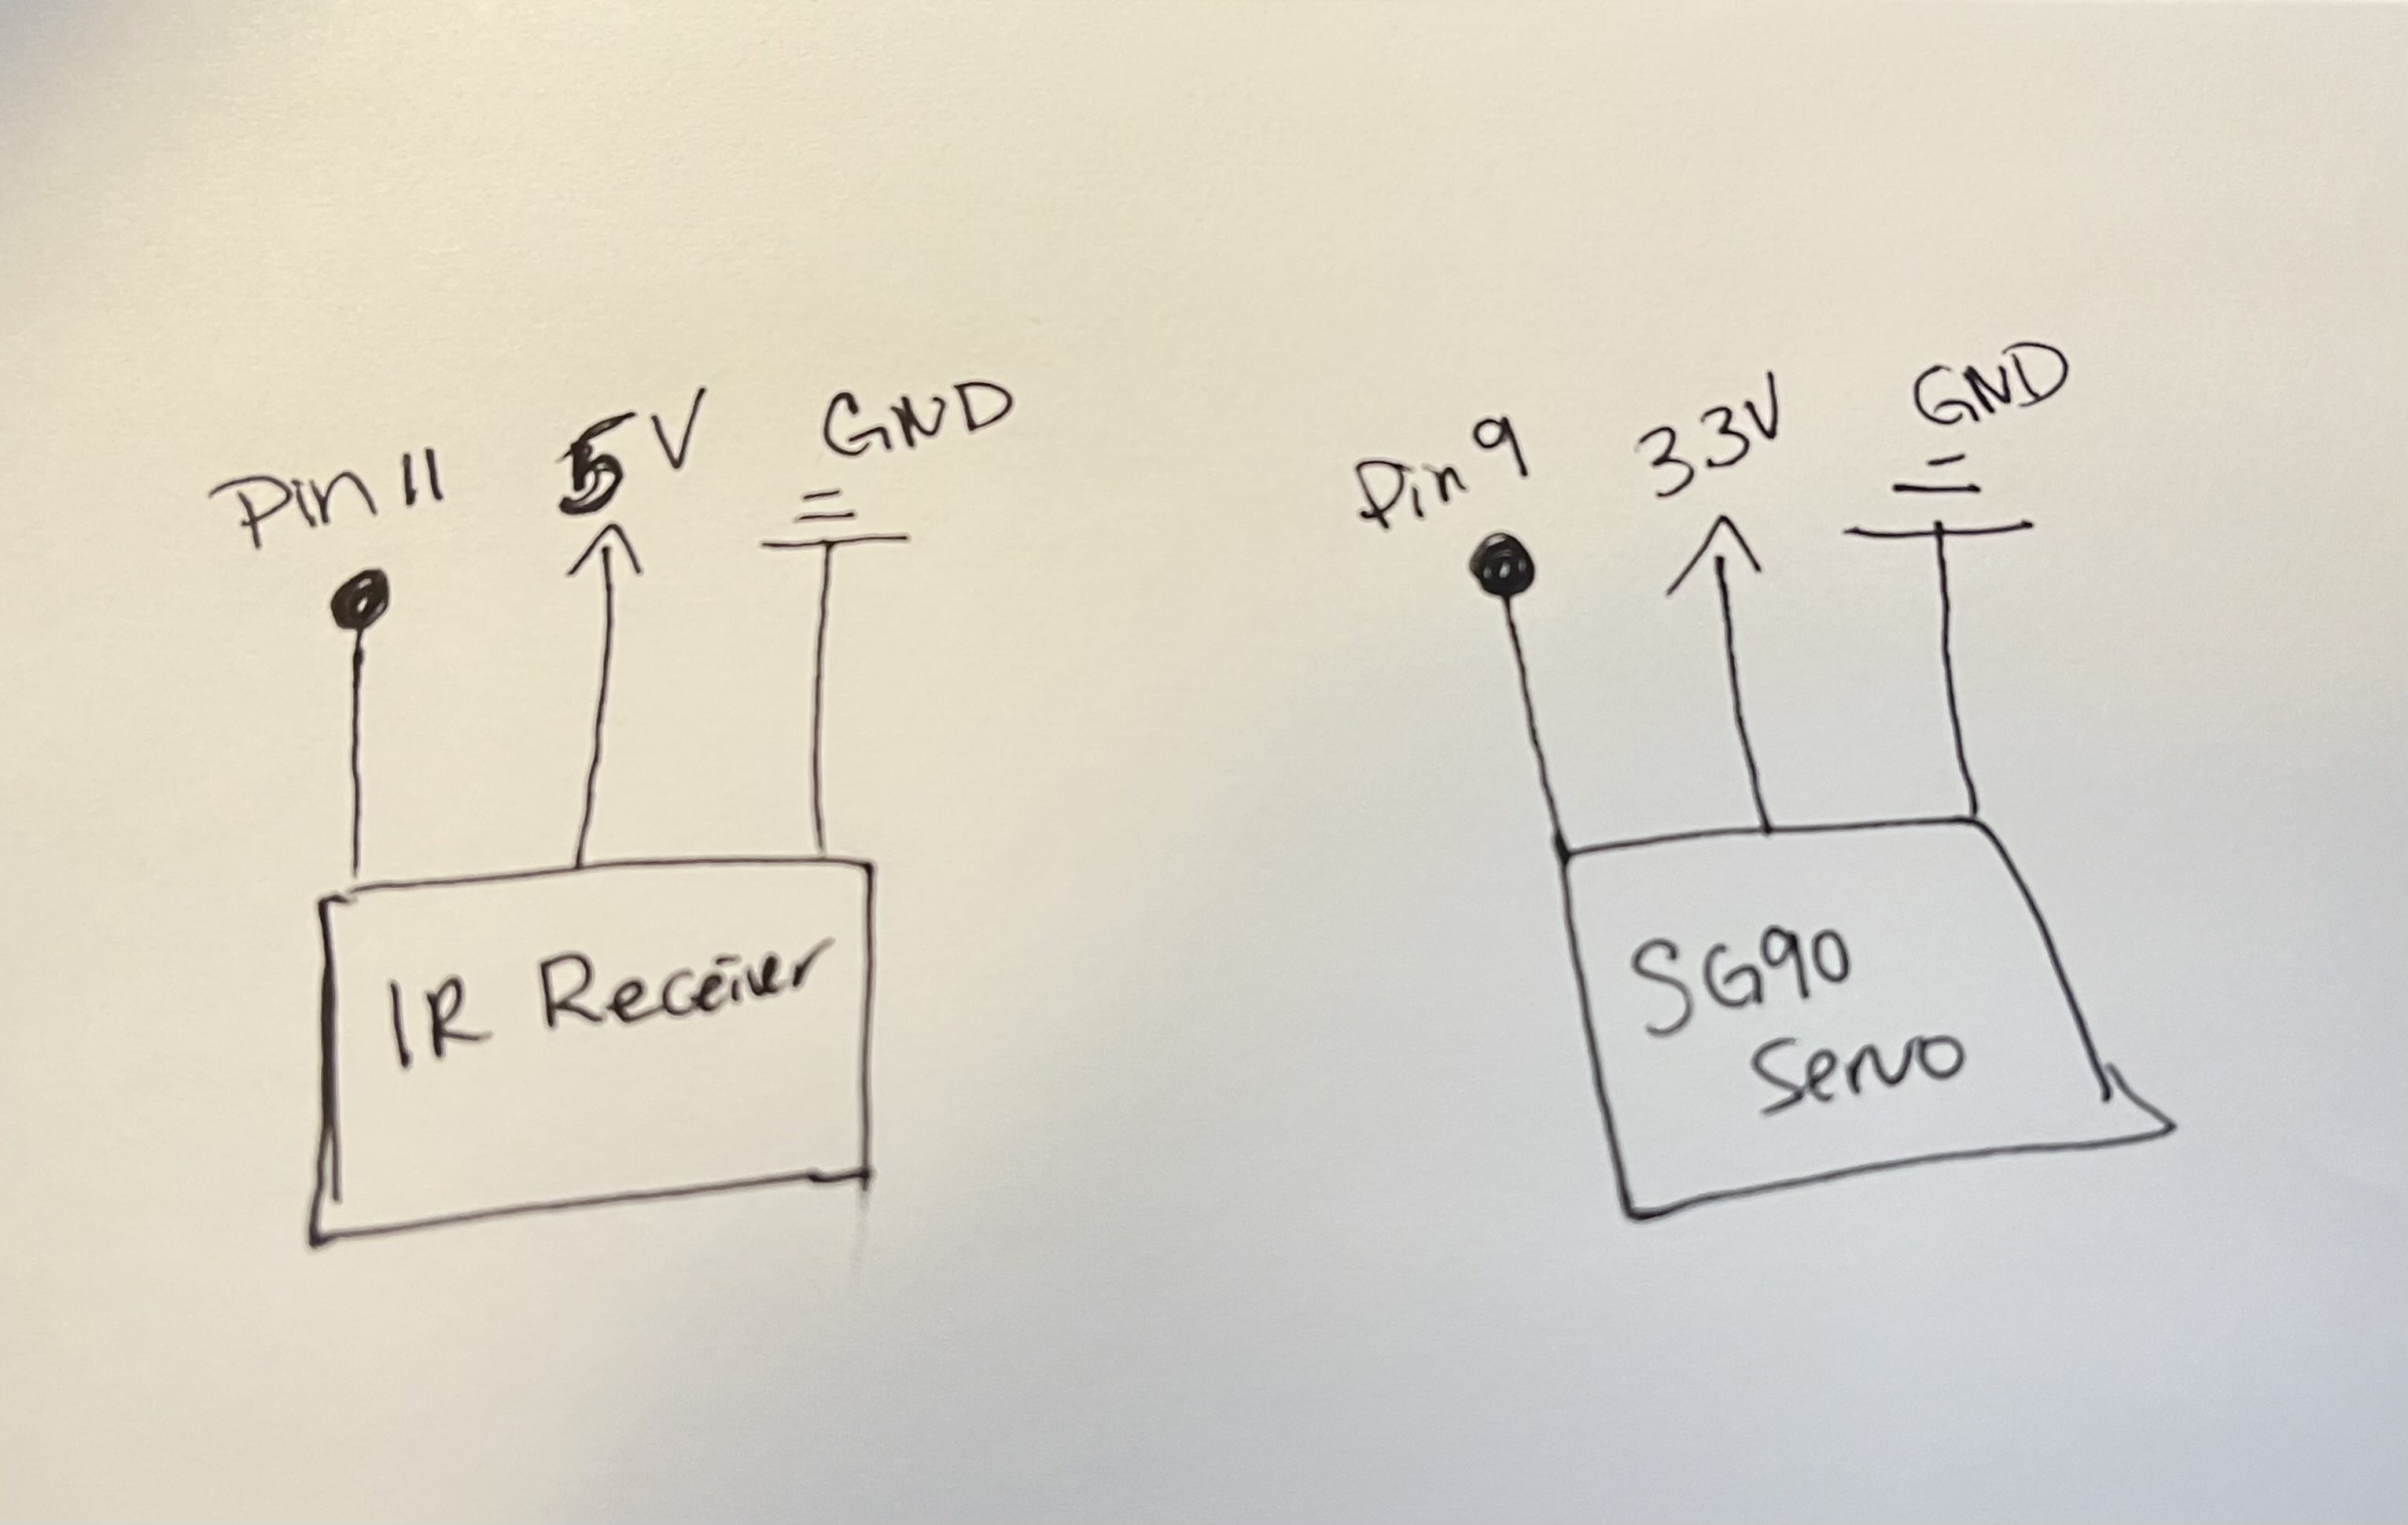 Pin 11
5V
GND
IR Receiver
Pin 9
33V
GND
SG90
Servo